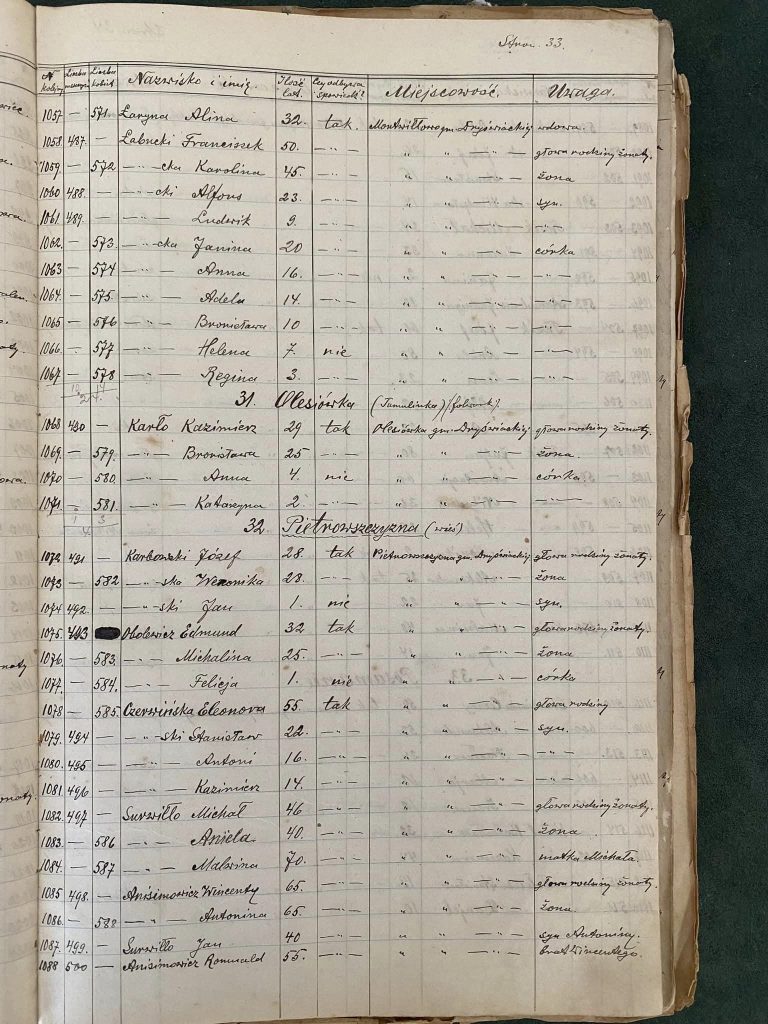 Stron. 33.
N kolejny Liczba mężczyzn Liczba kobiet Nazwisko i imię. Ilość lat. Czy odbywa spowiedź? Miejscowość. Uwaga.
1057 — 571. Łaryna Alina 32. tak. Montwiłłowo gm. Dryświackiej wdowa.
1058 487. — Łabucki Franciszek 50. — " — " " — " — głowa rodziny żonaty.
1059. — 572 — " — cka Karolina 45. — " — " " — " — żona
1060 488. — — " — cki Alfons 23. — " — " " — " — syn.
1061 489. — — " — Ludwik 9. — " — " " — " — — " —
1062. — 573. — " — cka Janina 20 — " — " " — " — córka
1063 — 574 — " — Anna 16. — " — " " — " — — " —
1064. — 575. — " — Adela 14. — " — " " — " — — " —
1065 — 576 — " — Bronisława 10 — " — " " — " — — " —
1066. — 577 — " — Helena 7. nie " " — " — — " —
1067 — 578 — " — Regina 3. — " — " " — " — — " —
24.
31. Olesiówka (Tamulinka) (folwark)
1068 490 — Karło Kazimierz 29 tak Olesiówka gm. Dryświackiej głowa rodziny żonaty.
1069. — 579. — " — Bronisława 25 — " — " " — " — żona.
1070 — 580. — " — Anna 4. nie " " — " — córka
1071. — 581. — " — Katarzyna 2. — " — " " — " — — " —
1 3
4.
32. Pietrowszczyzna (wieś)
1072 491 — Karbowski Józef 28. tak Pietrowszczyzna gm. Dryświackiej głowa rodziny żonaty.
1073 — 582 — " — ska Weronika 23. — " — " " — " — żona
1074 492. — — " — ski Jan 1. nie " " — " — syn.
1075. 493 Obolewicz Edmund 32 tak " " — " — głowa rodziny żonaty.
1076. — 583. — " — Michalina 25. — " — " " — " — żona
1077. — 584. — " — Felicja 1. nie " " — " — córka
1078 — 585. Czerwińska Eleonora 55. tak " " — " — głowa rodziny
1079. 494 — — " — ski Stanisław 22. — " — " " — " — syn.
1080. 495 — — " — Antoni 16. — " — " " — " — — " —
1081. 496 — — " — Kazimierz 14. — " — " " — " — — " —
1082. 497 — Surwiłło Michał 46 — " — " " — " — głowa rodziny żonaty.
1083. — 586 — " — Aniela 40. — " — " " — " — żona
1084. — 587 — " — Malwina 70. — " — " " — " — matka Michała.
1085 498. — Anisimowicz Wincenty 65. — " — " " — " — głowa rodziny żonaty.
1086. — 588 — " — Antonina 65. — " — " " — " — żona.
1087. 499. — Surwiłło Jan 40 — " — " " — " — syn Antoniny.
1088 500 — Anisimowicz Romuald 55. — " — " " — " — brat Wincentego.